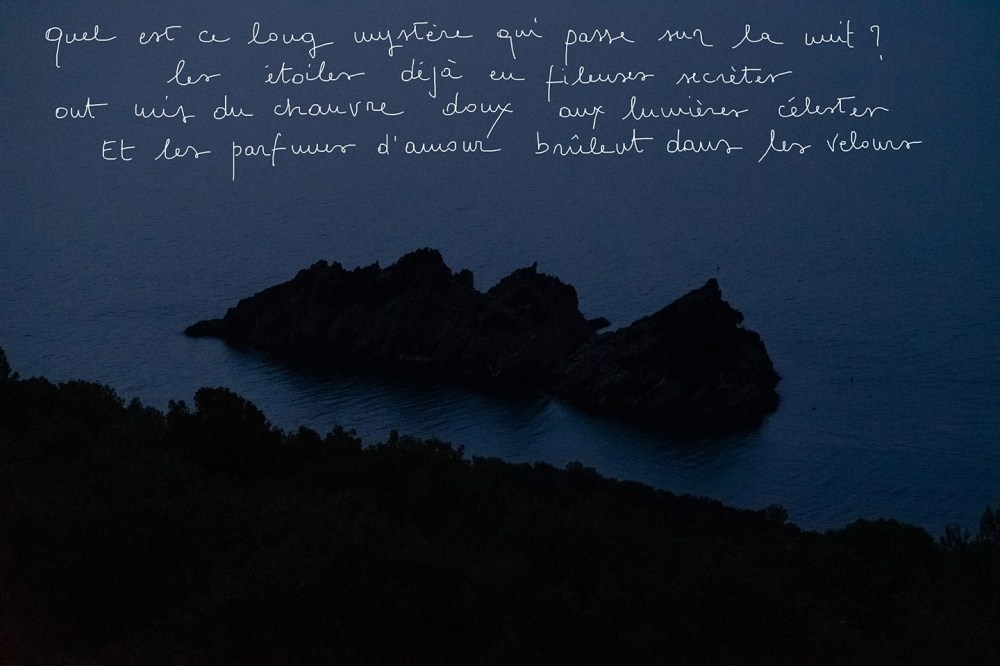 Quel est ce long mystère qui passe sur la nuit ?
les étoiles déjà en fileuses secrètes
ont mis du chanvre doux aux lumières célestes
Et les parfums d'amour brûlent dans les velours